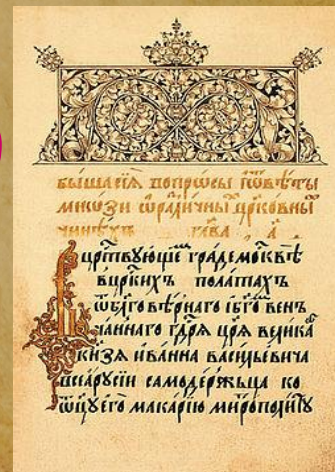 быша сїѧ вопрѡсы и ѿвѣты
мнѡзи ѡ разли́чны црко́вны
чинѣхъ глава а
Въ црⷭ҇твующе гра́де москвѣ
в црⷭ҇кихъ пола́тахъ
ѿ бл҃гове́рнаго и бг҃овенъ
ча́ннаго гдⷭ҇рѧ цр҃ѧ вели́ка
кнѧ́зѧ ива́нна васи́льевича
всеѧ рꙋсїи самоде́ржьца ко
ѡц҃ꙋ его̀ мака́рїю митрополи́тꙋ